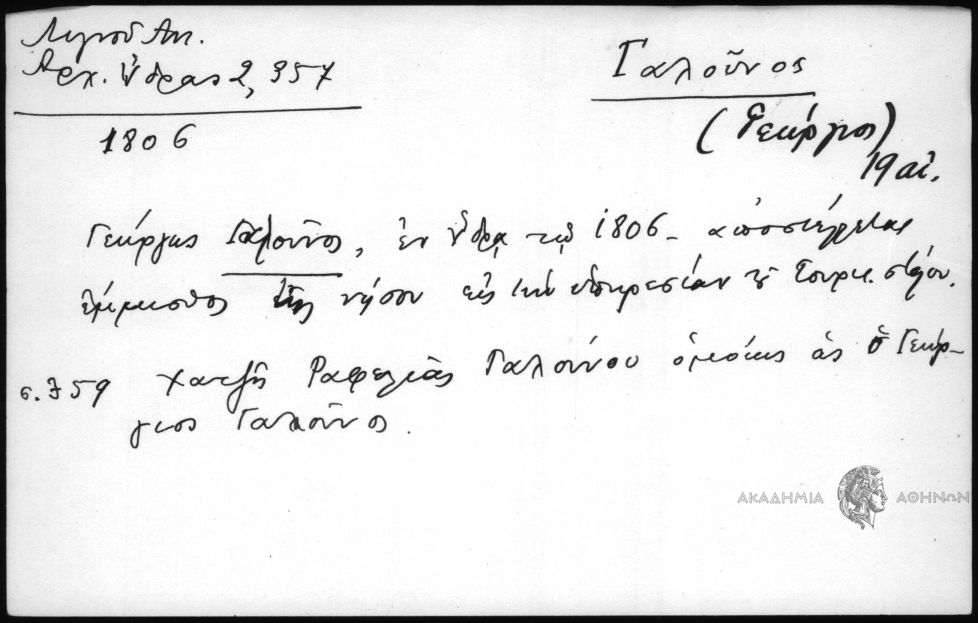 Λιγνοῦ Ἀντ.
Ἀρχ. Ὕδρας 2, 357
1806
Γαλοῦνος
(Γεώργιος)
19 αἰ.
Γεώργης Γαλοῦνος, ἐν Ὕδρᾳ τῷ 1806 - ἀποστέλλεται
ἔμμισθος τῆς νήσου εἰς τὴν ὑπηρεσίαν τοῦ Τουρκ. στόλου.
σ. 359 Χατζῆ Ραφελιᾶς Γαλούνου ὁμοίως ὡς ὁ Γεώρ-
γιος Γαλοῦνος.
ΑΚΑΔΗΜΙΑ ΑΘΗΝΩΝ